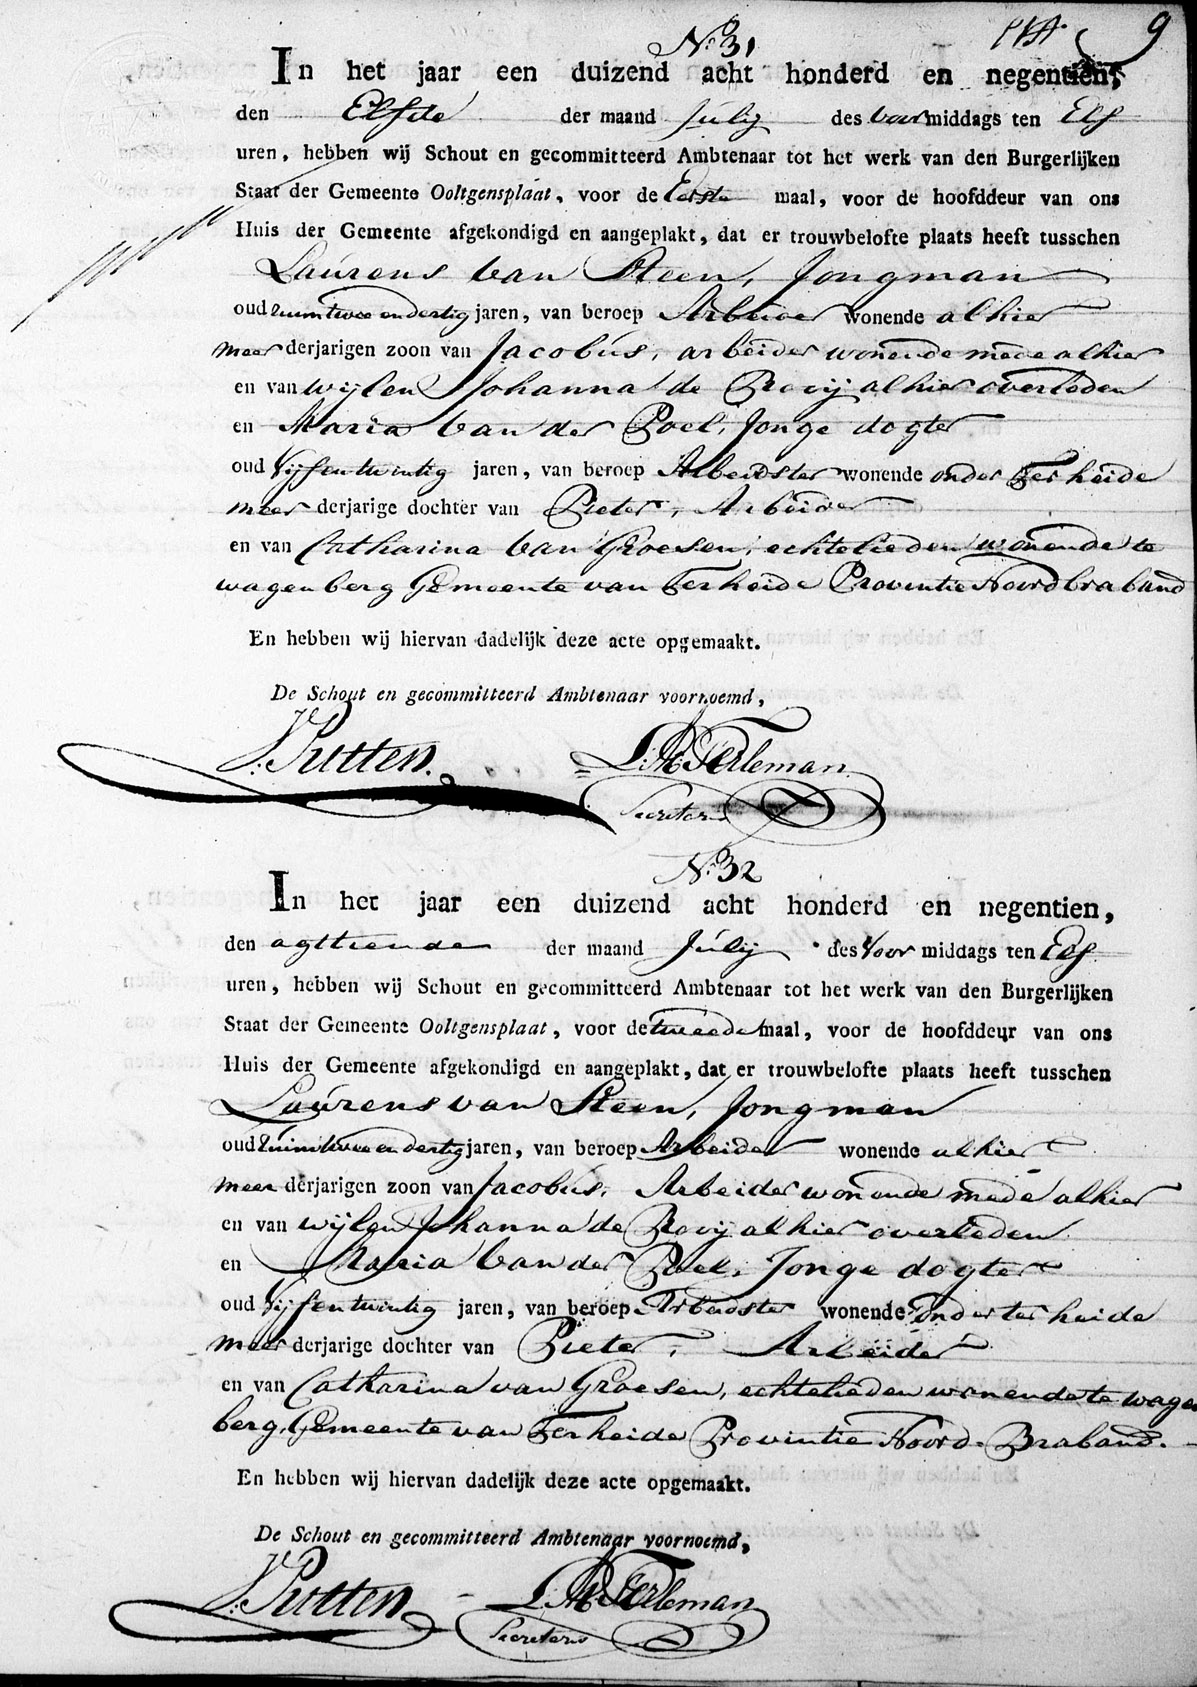 N.o 31
9
In het jaar een duizend acht honderd en negentien,
den Elfde der maand Julij des voormiddags ten Elf
uren, hebben wij Schout en gecommitteerd Ambtenaar tot het werk van den Burgerlijken
Staat der Gemeente Ooltgensplaat, voor de Eerste maal, voor de hoofddeur van ons
Huis der Gemeente afgekondigd en aangeplakt, dat er trouwbelofte plaats heeft tusschen
Laurens van Steen, Jongman
oud ruim twee en dertig jaren, van beroep Arbeider wonende alhier
meerderjarigen zoon van Jacobus, arbeider wonende mede alhier
en van wijlen Johanna de Rooij alhier overleden
en Maria van der Poel, Jonge dogter
oud Vijfentwintig jaren, van beroep Arbeidster wonende onder Terheide
meerderjarige dochter van Pieter, Arbeider
en van Catharina van Groesen, echtelieden wonende te
wagenberg Gemeente van Terheide Provintie Noordbraband
En hebben wij hiervan dadelijk deze acte opgemaakt.
De Schout en gecommitteerd Ambtenaar voornoemd,
Putten.
Secretaris
N.o 32
In het jaar een duizend acht honderd en negentien,
den agttiende der maand Julij des Voormiddags ten Elf
uren, hebben wij Schout en gecommitteerd Ambtenaar tot het werk van den Burgerlijken
Staat der Gemeente Ooltgensplaat, voor de tweede maal, voor de hoofddeur van ons
Huis der Gemeente afgekondigd en aangeplakt, dat er trouwbelofte plaats heeft tusschen
Laurens van Steen, Jongman
oud ruim twee en dertig jaren, van beroep Arbeider wonende alhier
meerderjarigen zoon van Jacobus, Arbeider wonende mede alhier
en van wijlen Johanna de Rooij alhier overleden
en Maria van der Poel, Jonge dogter
oud Vijfentwintig jaren, van beroep Arbeidster wonende onder ter heide
meerderjarige dochter van Pieter, Arbeider
en van Catharina van Groesen, echtelieden wonende te wagen
berg, Gemeente van Terheide Provintie Noord-Braband.
En hebben wij hiervan dadelijk deze acte opgemaakt.
De Schout en gecommitteerd Ambtenaar voornoemd,
Putten
Secretaris